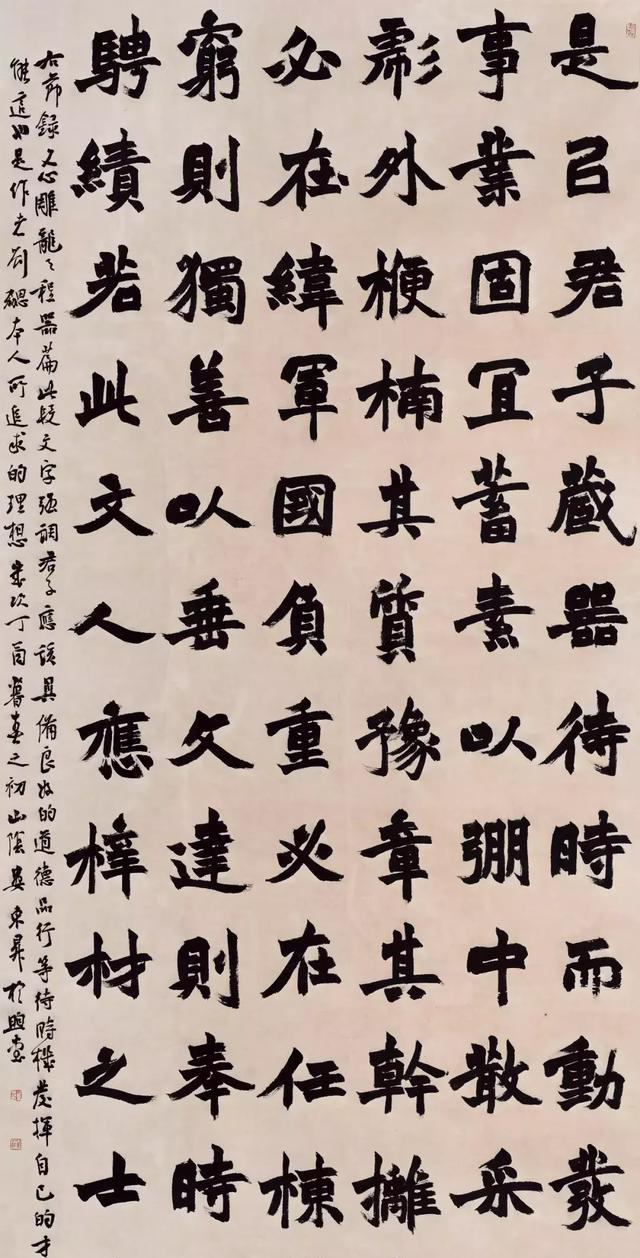 是己君子藏器待時而動發
事業固宜蓄素以弸中散采
彪外楩楠其質豫章其幹摛
必在緯軍國負重必在任棟
窮則獨善以垂文達則奉時
騁績若此文人應梓材之士
右節録文心雕龍之程器篇此段文字强調君子應該具備良好的道德品行等待時機發揮自己的才
能這也是作者劉勰本人所追求的理想歲次丁酉暮春之初山陰吳東昇於